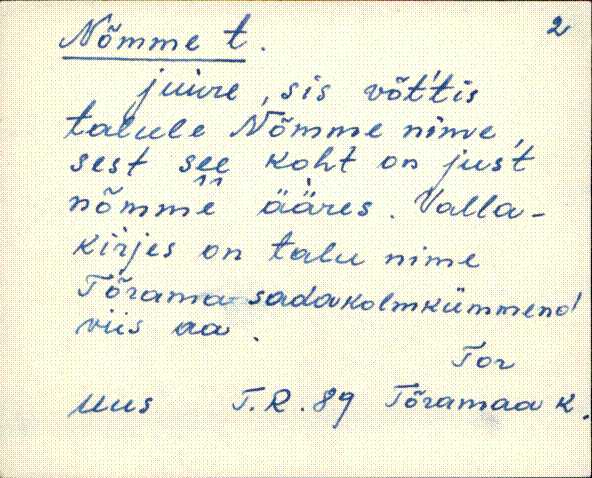 2
Nõmme t.
juure, sis võt't'is
talule Nõmme nime,
sest see koht on jus't
nõmme ääres. Valla-
kirjes on talu nime
Tõrama-sadakolmkümmend
viis aa.
Tor
Uus T.R. 89 Tõramaa k.